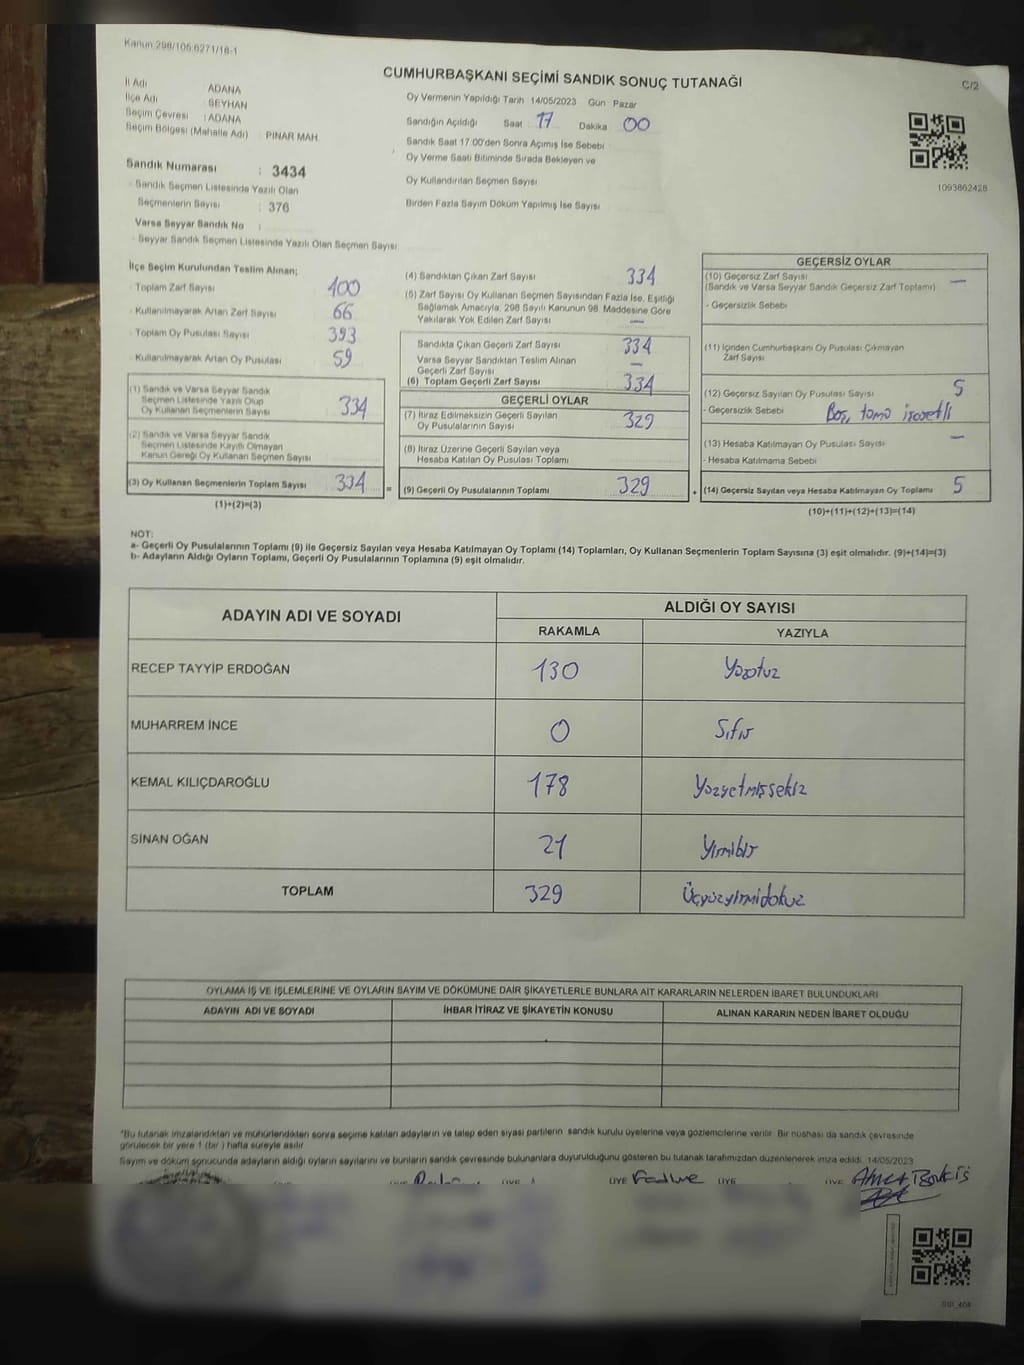 Kanun:298/105;6271/18-1
CUMHURBAŞKANI SEÇİMİ SANDIK SONUÇ TUTANAĞI
C/2
İl Adı ADANA
İlçe Adı SEYHAN
Seçim Çevresi : ADANA
Seçim Bölgesi (Mahalle Adı) : PINAR MAH.
Sandık Numarası : 3434
- Sandık Seçmen Listesinde Yazılı Olan
Seçmenlerin Sayısı : 376
Varsa Seyyar Sandık No :
- Seyyar Sandık Seçmen Listesinde Yazılı Olan Seçmen Sayısı:
Oy Vermenin Yapıldığı Tarih 14/05/2023 Gün Pazar
Sandığın Açıldığı Saat : 17 Dakika 00
Sandık Saat 17:00'den Sonra Açımış İse Sebebi
Oy Verme Saati Bitiminde Sırada Bekleyen ve
Oy Kullandırılan Seçmen Sayısı
Birden Fazla Sayım Döküm Yapılmış İse Sayısı
1093862428
İlçe Seçim Kurulundan Teslim Alınan;
- Toplam Zarf Sayısı 400
- Kullanılmayarak Artan Zarf Sayısı 66
- Toplam Oy Pusulası Sayısı 393
- Kullanılmayarak Artan Oy Pusulası 59
(1) Sandık ve Varsa Seyyar Sandık
Seçmen Listesinde Yazılı Olup
Oy Kullanan Seçmenlerin Sayısı 334
(2) Sandık ve Varsa Seyyar Sandık
Seçmen Listesinde Kayıtlı Olmayan
Kanun Gereği Oy Kullanan Seçmen Sayısı
(3) Oy Kullanan Seçmenlerin Toplam Sayısı 334 =
(1)+(2)=(3)
(4) Sandıktan Çıkan Zarf Sayısı 334
(5) Zarf Sayısı Oy Kullanan Seçmen Sayısından Fazla İse, Eşitliği
Sağlamak Amacıyla, 298 Sayılı Kanunun 98. Maddesine Göre
Yakılarak Yok Edilen Zarf Sayısı —
Sandıkta Çıkan Geçerli Zarf Sayısı 334
Varsa Seyyar Sandıktan Teslim Alınan
Geçerli Zarf Sayısı —
(6) Toplam Geçerli Zarf Sayısı 334
GEÇERLİ OYLAR
(7) İtiraz Edilmeksizin Geçerli Sayılan
Oy Pusulalarının Sayısı 329
(8) İtiraz Üzerine Geçerli Sayılan veya
Hesaba Katılan Oy Pusulası Toplamı
(9) Geçerli Oy Pusulalarının Toplamı 329 +
GEÇERSİZ OYLAR
(10) Geçersiz Zarf Sayısı
(Sandık ve Varsa Seyyar Sandık Geçersiz Zarf Toplamı) —
- Geçersizlik Sebebi
(11) İçinden Cumhurbaşkanı Oy Pusulası Çıkmayan
Zarf Sayısı
(12) Geçersiz Sayılan Oy Pusulası Sayısı 5
- Geçersizlik Sebebi Boş,
(13) Hesaba Katılmayan Oy Pusulası Sayısı —
- Hesaba Katılmama Sebebi
(14) Geçersiz Sayılan veya Hesaba Katılmayan Oy Toplamı 5
(10)+(11)+(12)+(13)=(14)
NOT:
a- Geçerli Oy Pusulalarının Toplamı (9) ile Geçersiz Sayılan veya Hesaba Katılmayan Oy Toplamı (14) Toplamları, Oy Kullanan Seçmenlerin Toplam Sayısına (3) eşit olmalıdır. (9)+(14)=(3)
b- Adayların Aldığı Oyların Toplamı, Geçerli Oy Pusulalarının Toplamına (9) eşit olmalıdır.
ADAYIN ADI VE SOYADI
ALDIĞI OY SAYISI
RAKAMLA YAZIYLA
RECEP TAYYİP ERDOĞAN 130 Yüzotuz
MUHARREM İNCE 0 Sıfır
KEMAL KILIÇDAROĞLU 178 Yüzyetmişsekiz
SİNAN OĞAN 21 Yirmibir
TOPLAM 329 Üçyüzyirmidokuz
OYLAMA İŞ VE İŞLEMLERİNE VE OYLARIN SAYIM VE DÖKÜMÜNE DAİR ŞİKAYETLERLE BUNLARA AİT KARARLARIN NELERDEN İBARET BULUNDUKLARI
ADAYIN ADI VE SOYADI İHBAR İTİRAZ VE ŞİKAYETİN KONUSU ALINAN KARARIN NEDEN İBARET OLDUĞU
*Bu tutanak imzalandıktan ve mühürlendikten sonra seçime katılan adayların ve talep eden siyasi partilerin sandık kurulu üyelerine veya gözlemcilerine verilir. Bir nüshası da sandık çevresinde
görülecek bir yere 1 (bir) hafta süreyle asılır.
Sayım ve döküm sonucunda adayların aldığı oyların sayılarını ve bunların sandık çevresinde bulunanlara duyurulduğunu gösteren bu tutanak tarafımızdan düzenlenerek imza edildi. 14/05/2023
ÜYE ÜYE ÜYE ÜYE ÜYE